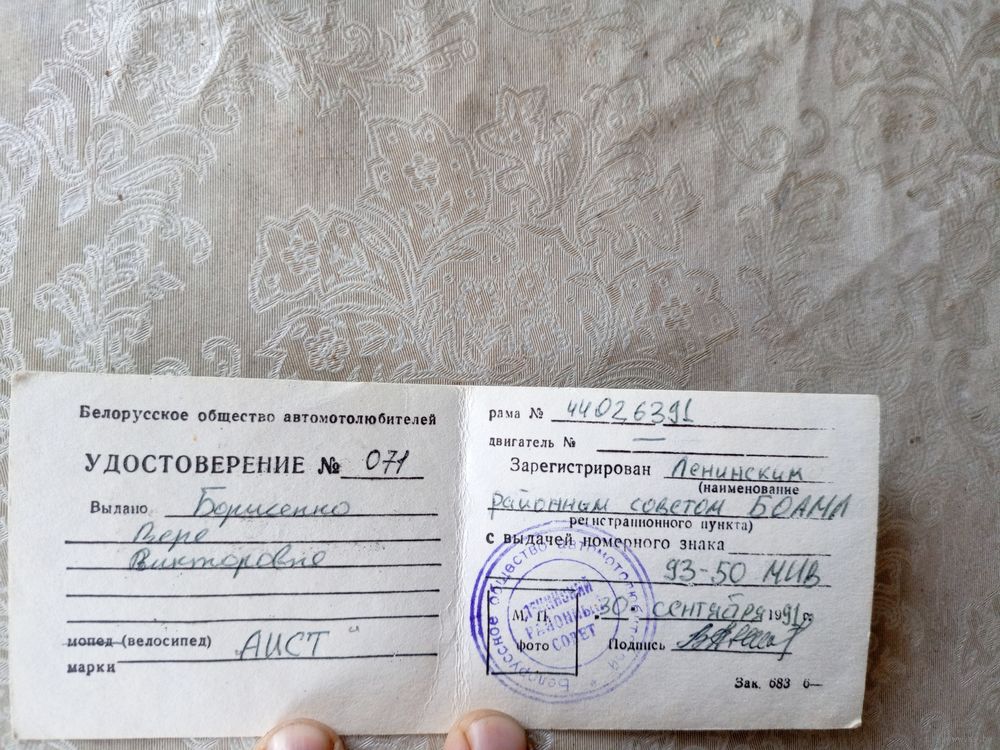 Белорусское общество автомотолюбителей
УДОСТОВЕРЕНИЕ № 071
Выдано Борисенко
Вере
Викторовне
мопед (велосипед) „АИСТ"
марки
рама № 44026391
двигатель № —
Зарегистрирован Ленинским
(наименование
районным советом БОАМЛ
регистрационного пункта)
с выдачей номерного знака
93-50 МИВ
М. П. „30" сентября 1991 г.
фото Подпись
Зак. 683 6—
Белорусское общество автомотолюбителей
Ленинский
РАЙОННЫЙ
СОВЕТ